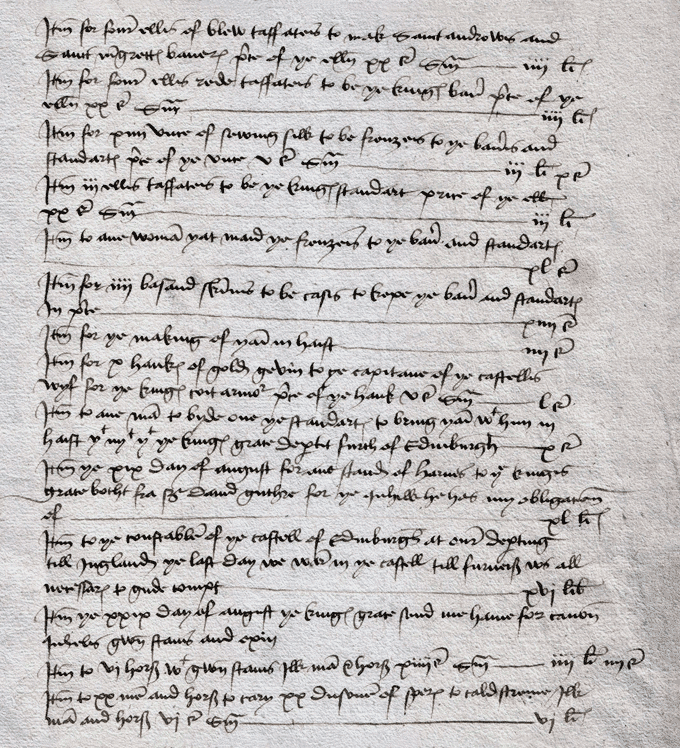 Itm for four ellis of blew taffateis to mak Sanct androwis and
Sanct mgrettꝭ baneris pͥce of ye elln xx ẞ Sm̃ —— iiij li
Itm for four ellis rede taffateis to be ye kingꝭ ban̄ pͥce of ye
elln xx ẞ Sm̃ —— iiij li
Itm for xiiij vnce of sewing silk to be frenzeis to ye ban̄is and
standartꝭ pͥce of ye vnce v ẞ Sm̃ —— iij li x ẞ
Itm iij ellis taffateis to be ye kingꝭ standart price of ye elln
xx ẞ Sm̃ —— iij li
Itm to ane womā yat maid ye frenzeis to ye ban̄ and standartꝭ
—— xl ẞ
Itm for iiij basand skīnis to be casis to kepe ye ban̄ and standartꝭ
in pͥce —— xiiij ẞ
Itm for ye making of yaī in haist —— iiij ẞ
Itm for x hankꝭ of gold gevin to ye capitane of ye castellis
wyf for ye kingꝭ coit armoʳ pͥce of ye hank v ẞ Sm̃ —— l ẞ
Itm to ane mā to byde one ye standartꝭ to bring yaī wᵗ him in
haist yᵗ nyᵗ yᵗ ye kingꝭ grace deptit furth of Edinburgh —— x ẞ
Itm ye xix day of august for ane stand of harnes to yͤ kingis
grace bocht fra Schir dauid guthre for ye quhilk he has my obligatioun
of —— xl li
Itm to ye constabble of ye castell of Edinburgh at our depting
till Ingland ye last day we war in ye castell till furneis ws all
necessarꝭ to gude compt —— xvi lib
Itm ye xxix day of august ye kingꝭ grace send me hame for canon
quhelis gwn stanis and oxin
Itm to vi horß wᵗ gwn stanis ilk mā & horß xiiij ẞ Sm̃ —— iiij li iiij ẞ
Itm to xx me and horß to cary xx dusoune of sperꝭ to caldstreme ilk
mā and horß vi ẞ Sm̃ —— vi li